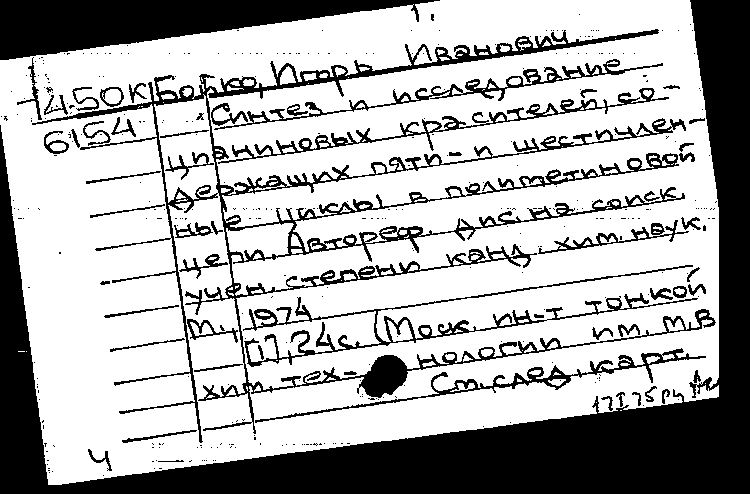 1.
450к Бобко, Игорь Иванович.
6154 Синтез и исследование
цианиновых красителей, со-
держащих пяти- и шестичлен-
ные циклы в полиметиновой
цепи. Автореф. дис. на соиск.
учен. степени канд. хим. наук.
М., 1974
[1], 24с. (Моск. ин-т тонкой
хим. тех- нологии им. М.В
См. след. карт.
4